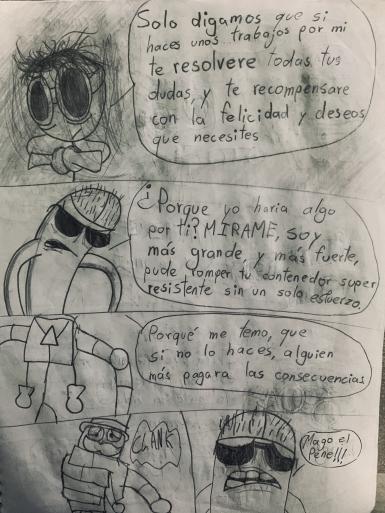 Solo digamos que si
haces unos trabajos por mi
te resolvere todas tus
dudas, y te recompensare
con la felicidad y deseos
que necesites
¿Porque yo haria algo
por ti? MIRAME, soy
más grande, y más fuerte,
pude romper tu contenedor super
resistente sin un solo esfuerzo.
Porqué me temo, que
si no lo haces, alguien
más pagara las consecuencias
CLANK
Mago el
Pene!!!